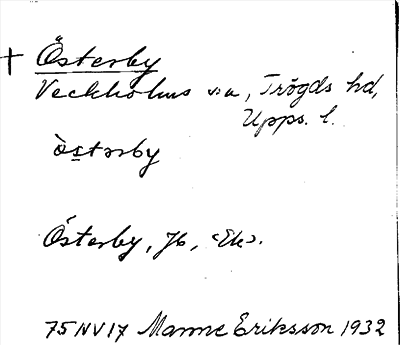 † Österby
Veckholms sn, Trögds hd,
Upps. l.
òstərby
Österby, Jb, <Ek>.
75NV17 Manne Eriksson 1932